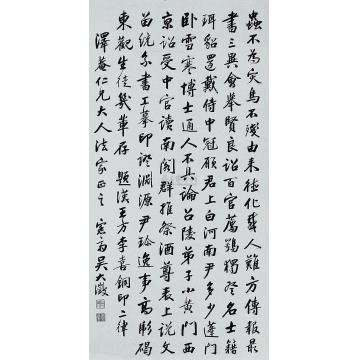 蟲不為灾鳥不殘由来德化感人難方傳報最
書三異會舉賢良詔百官薦鶚獨登名士籍
珥貂還戴侍中冠願君上白河南尹多少蓬門
卧雪寒博士通人不具論召陵弟子小黃門西
京詔受中官讀南閣群推祭酒尊表上說文
書工摹印證淵源尹珍逸事高彪碣
東觀生徒幾輩存 題漢王方李喜銅印二律
澤庵仁兄大人法家正之 愙齋吳大澂